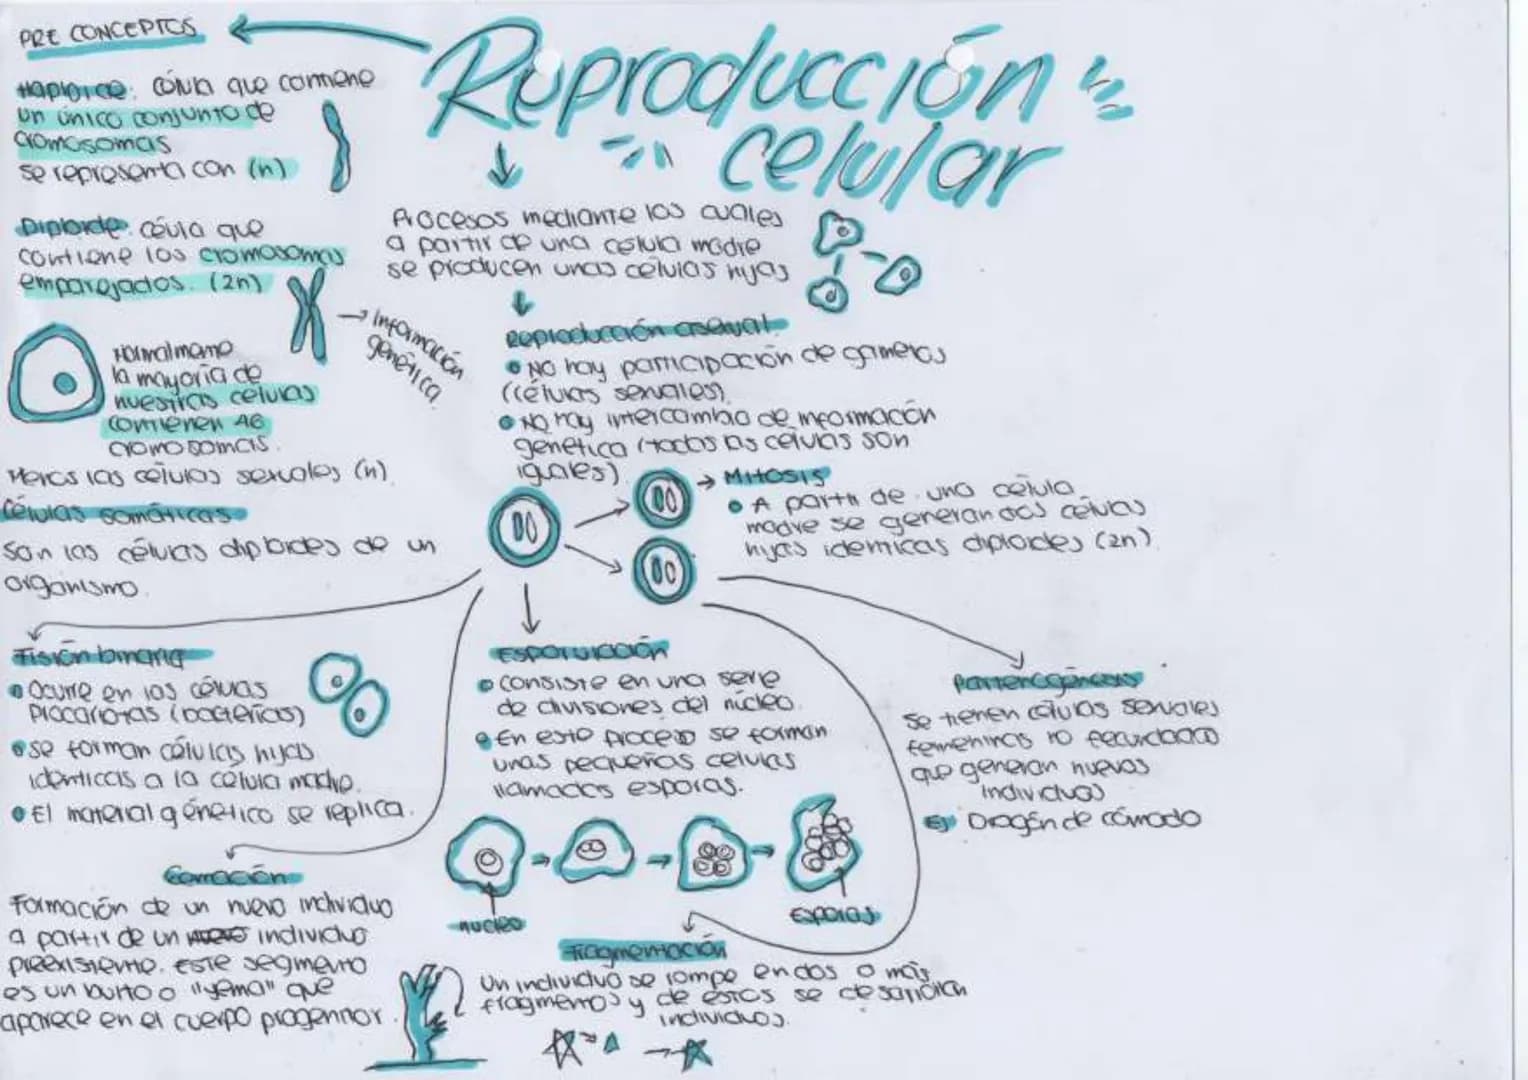 Reproducción
celular
PRE CONCEPTOS
Haploide: célula que contiene
un único conjunto de
cromosomas
se representa con (n)
Diploide: célula que
contiene los cromosomas
emparejados. (2n)
→ Información
genética
Normalmente
la mayoría de
nuestras células
contienen 46
cromosomas.
Menos las células sexuales (n).
Células somáticas
Son las células diploides de un
organismo.
Procesos mediante los cuales
a partir de una célula madre
se producen unas células hijas
Reproducción asexual
• No hay participación de gametos
(células sexuales)
• No hay intercambio de información
genética (todas las células son
iguales)
→ Mitosis
• A partir de una célula
madre se generan dos células
hijas identicas diploides (2n)
Fisión binaria
• Ocurre en las células
Procariotas (bacterias)
• Se forman células hijas
identicas a la célula madre.
• El material génetico se replica.
Esporulación
• Consiste en una serie
de divisiones del núcleo.
• En este proceso se forman
unas pequeñas celulas
llamadas esporas.
núcleo
Esporas
Partenogénesis
Se tienen células sexuales
femeninas no fecundadas
que generan nuevos
individuos
Ej Dragón de cómodo
Gemación
Formación de un nuevo individuo
a partir de un individuo
preexistente. Este segmento
es un bulto o "yema" que
aparece en el cuerpo progenitor.
Fragmentación
Un individuo se rompe en dos o más
fragmentos y de estos se desarrollan
individuos.